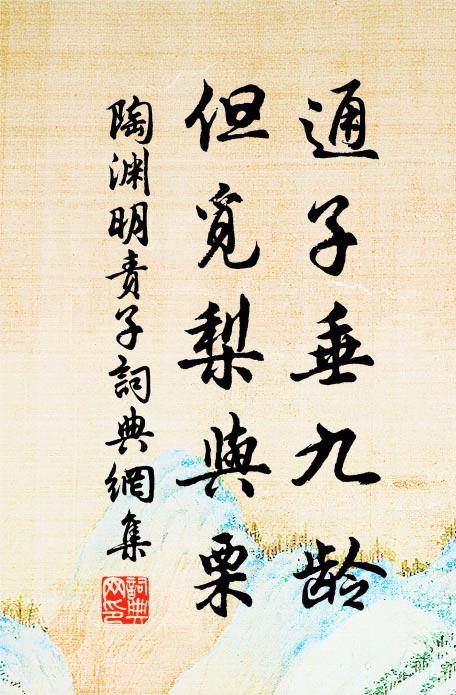 通子垂九龄
但觅梨與栗
陶渊明責子詞典網集
詞典